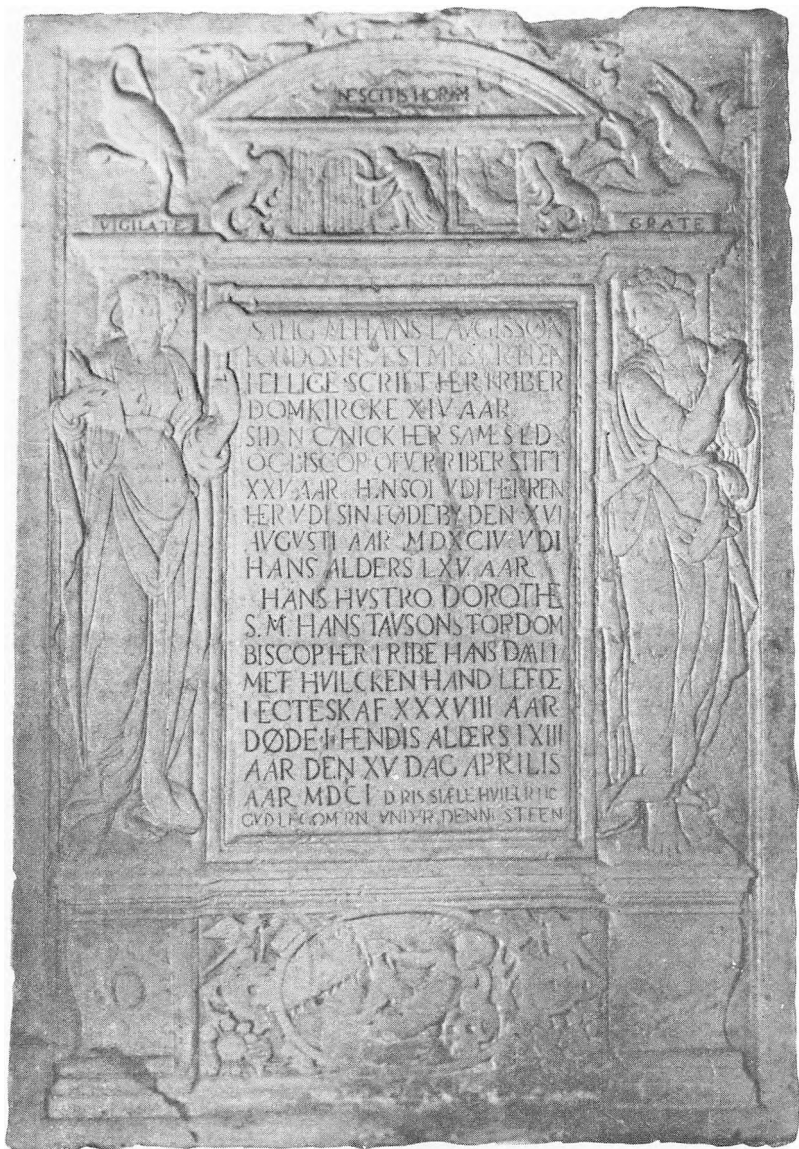 NESCITIS HORAM
VIGILATE
GRATE
SALIG M HANS LAVGISSØN
FORDOM
I ELLIGE SCRIFT HER I RIBER
DOMKIRCKE XIV AAR
SIDEN CANICK HER SAMESTED
OC BISCOP OFVER RIBER STIFT
XXV AAR HENSOF VDI HERREN
HER VDI SIN FØDEBY DEN XVI
AVGVSTI AAR MDXCIV VDI
HANS ALDERS LXV AAR
HANS HVSTRO DOROTHE
S. M. HANS TAVSONS FORDOM
BISCOP HER I RIBE HANS DAATT
MET HVILCKEN HAND LEFDE
I ECTESKAF XXXVIII AAR
DØDE I HENDIS ALDERS LXIII
AAR DEN XV DAG APRILIS
AAR MDCI D RIS SIÆLE HVILER HC
GVD LEGOMERN VNDER DENNE STEEN